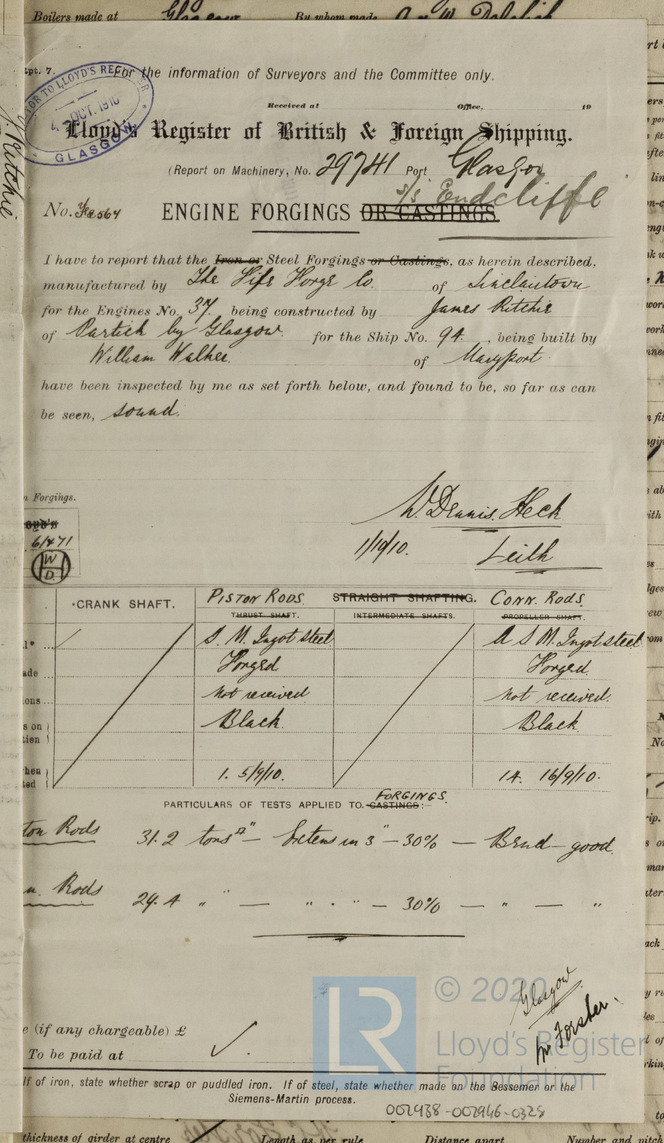 Boilers made at Glasgow By whom made
J. Ritchie
pt. 7. For the information of Surveyors and the Committee only.
OR TO LLOYD'S REGISTER
4 OCT. 1910
GLASGOW
Received at Office, 19
Lloyd's Register of British & Foreign Shipping.
(Report on Machinery, No. 29741 Port Glasgow
s/s Endcliffe
No. ENGINE FORGINGS OR CASTINGS.
I have to report that the Iron or Steel Forgings or Castings, as herein described,
manufactured by The Fife Forge Co. of Sinclairtown
for the Engines No. 37 being constructed by James Ritchie
of Partick by Glasgow for the Ship No. 94, being built by
William Walker of Maryport
have been inspected by me as set forth below, and found to be, so far as can
be seen, sound.
Forgings.
W. Dennis Heck
1/10/10. Leith
6/471
W
D
CRANK SHAFT. PISTON RODS STRAIGHT SHAFTING. CONN. RODS.
THRUST SHAFT. INTERMEDIATE SHAFTS. PROPELLER SHAFT.
S. M. Ingot steel A S M. Ingot steel
Forged Forged
Not received Not received.
Black Black
1. 5/9/10. 14. 16/9/10.
PARTICULARS OF TESTS APPLIED TO CASTINGS: FORGINGS.
ton Rods 31.2 tons □" — Extens in 3" — 30% — Bend — good
n. Rods 29.4 " " — " " " — 30% — " — "
Glasgow
e (if any chargeable) £
To be paid at
© 2020
LR
Lloyd's Register
Foundation
If of iron, state whether scrap or puddled iron. If of steel, state whether made on the Bessemer or the
Siemens-Martin process.
002938-002946-0328
thickness of girder at centre Length as per rule Distance apart Number and pitch